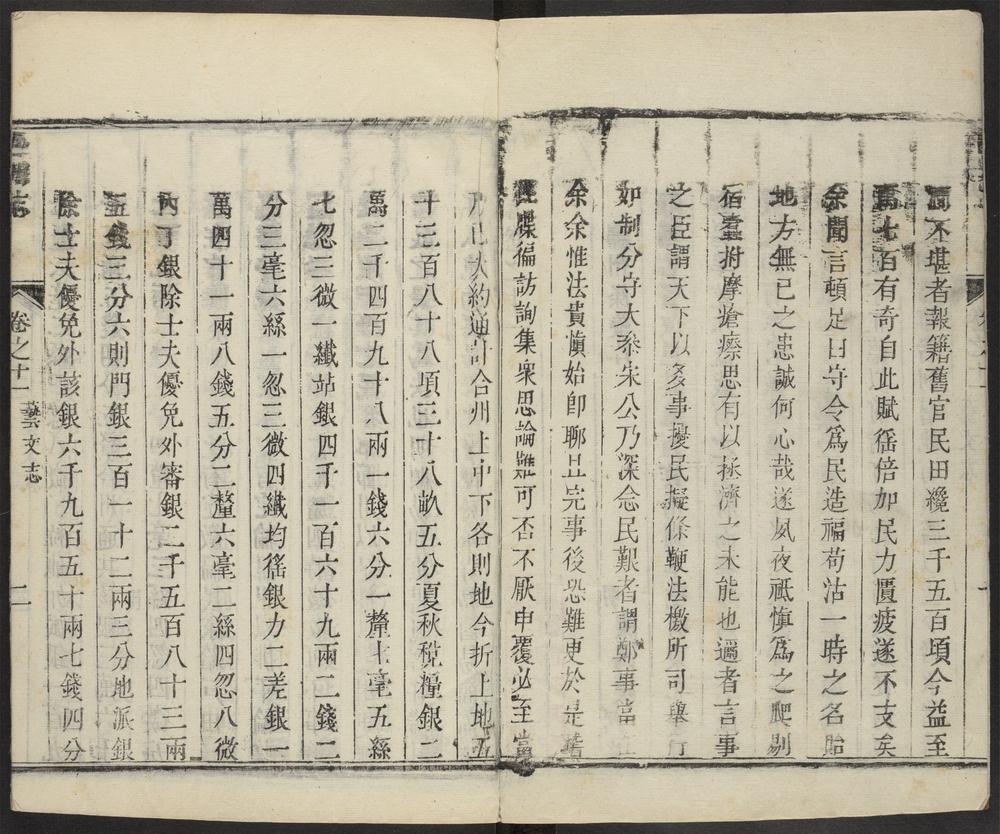 不堪者報籍舊官民田纔三千五百頃今益至
萬七百有奇自此賦徭倍加民力匱疲遂不支矣
余聞言頓足曰守令為民造福苟沽一時之名貽
地方無已之患誠何心哉遂夙夜祗慎為之爬剔
宿蠹拊摩瘡瘵思有以拯濟之未能也邇者言事
之臣謂天下以多事擾民擬條鞭法檄所司舉行
如制分守大叅宋公乃深念民艱者謂鄭事當
余余惟法貴慎始即聊且完事後恐難更於是
牒徧訪詢集衆思論難可否不厭申覆必至當
乃已大約通計合州上中下各則地今折上地五
千三百八十八頃三十八畝五分夏秋稅糧銀二
萬二千四百九十八兩一錢六分一釐七毫五絲
七忽三微一纖站銀四千一百六十九兩二錢二
分三毫六絲一忽三微四纖均徭銀力二差銀一
萬四十一兩八錢五分二釐六毫二絲四忽八微
內丁銀除士夫優免外審銀二千五百八十三兩
五錢三分六則門銀三百一十二兩三分地派銀
除士夫優免外該銀六千九百五十兩七錢四分
志
卷之十一
藝文志
二